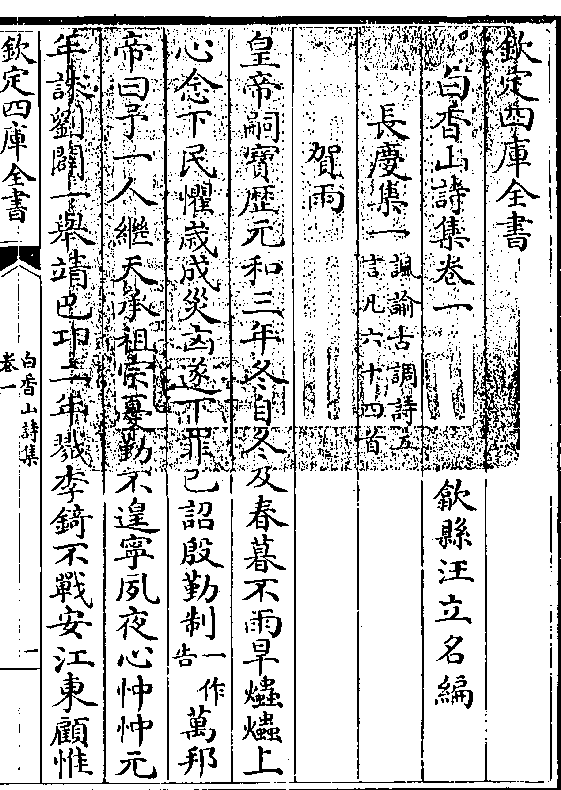 欽定四庫全書
白香山詩集卷一 歙縣汪立名編
長慶集一 諷諭古調詩五言凡六十四首
賀雨
皇帝嗣寶歴元和三年冬自冬及春暮不雨旱爞爞上
心念下民懼歳成災凶遂下罪己詔殷勤制一作告萬邦
帝曰予一人繼天承祖宗憂勤不遑寧夙夜心忡忡元
年誅劉闢一舉靖巴邛二年戮李錡不戰安江東顧惟
欽定四庫全書
白香山詩集
卷一
一